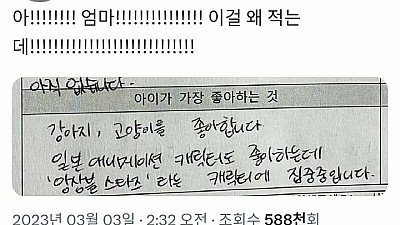 아!!!!!!!! 엄마!!!!!!!!!!!!!!!! 이걸 왜 적는
데!!!!!!!!!!!!!!!!!!!!!!!!!!!!!!
아직 없습니다.
아이가 가장 좋아하는 것
강아지, 고양이를 좋아합니다
일본 애니메이션 캐릭터도 좋아하는데
'앙상블 스타즈' 라는 캐릭터에 집중중입니다.
2023년 03월 03일 · 2:32 오전 · 조회수 588천회